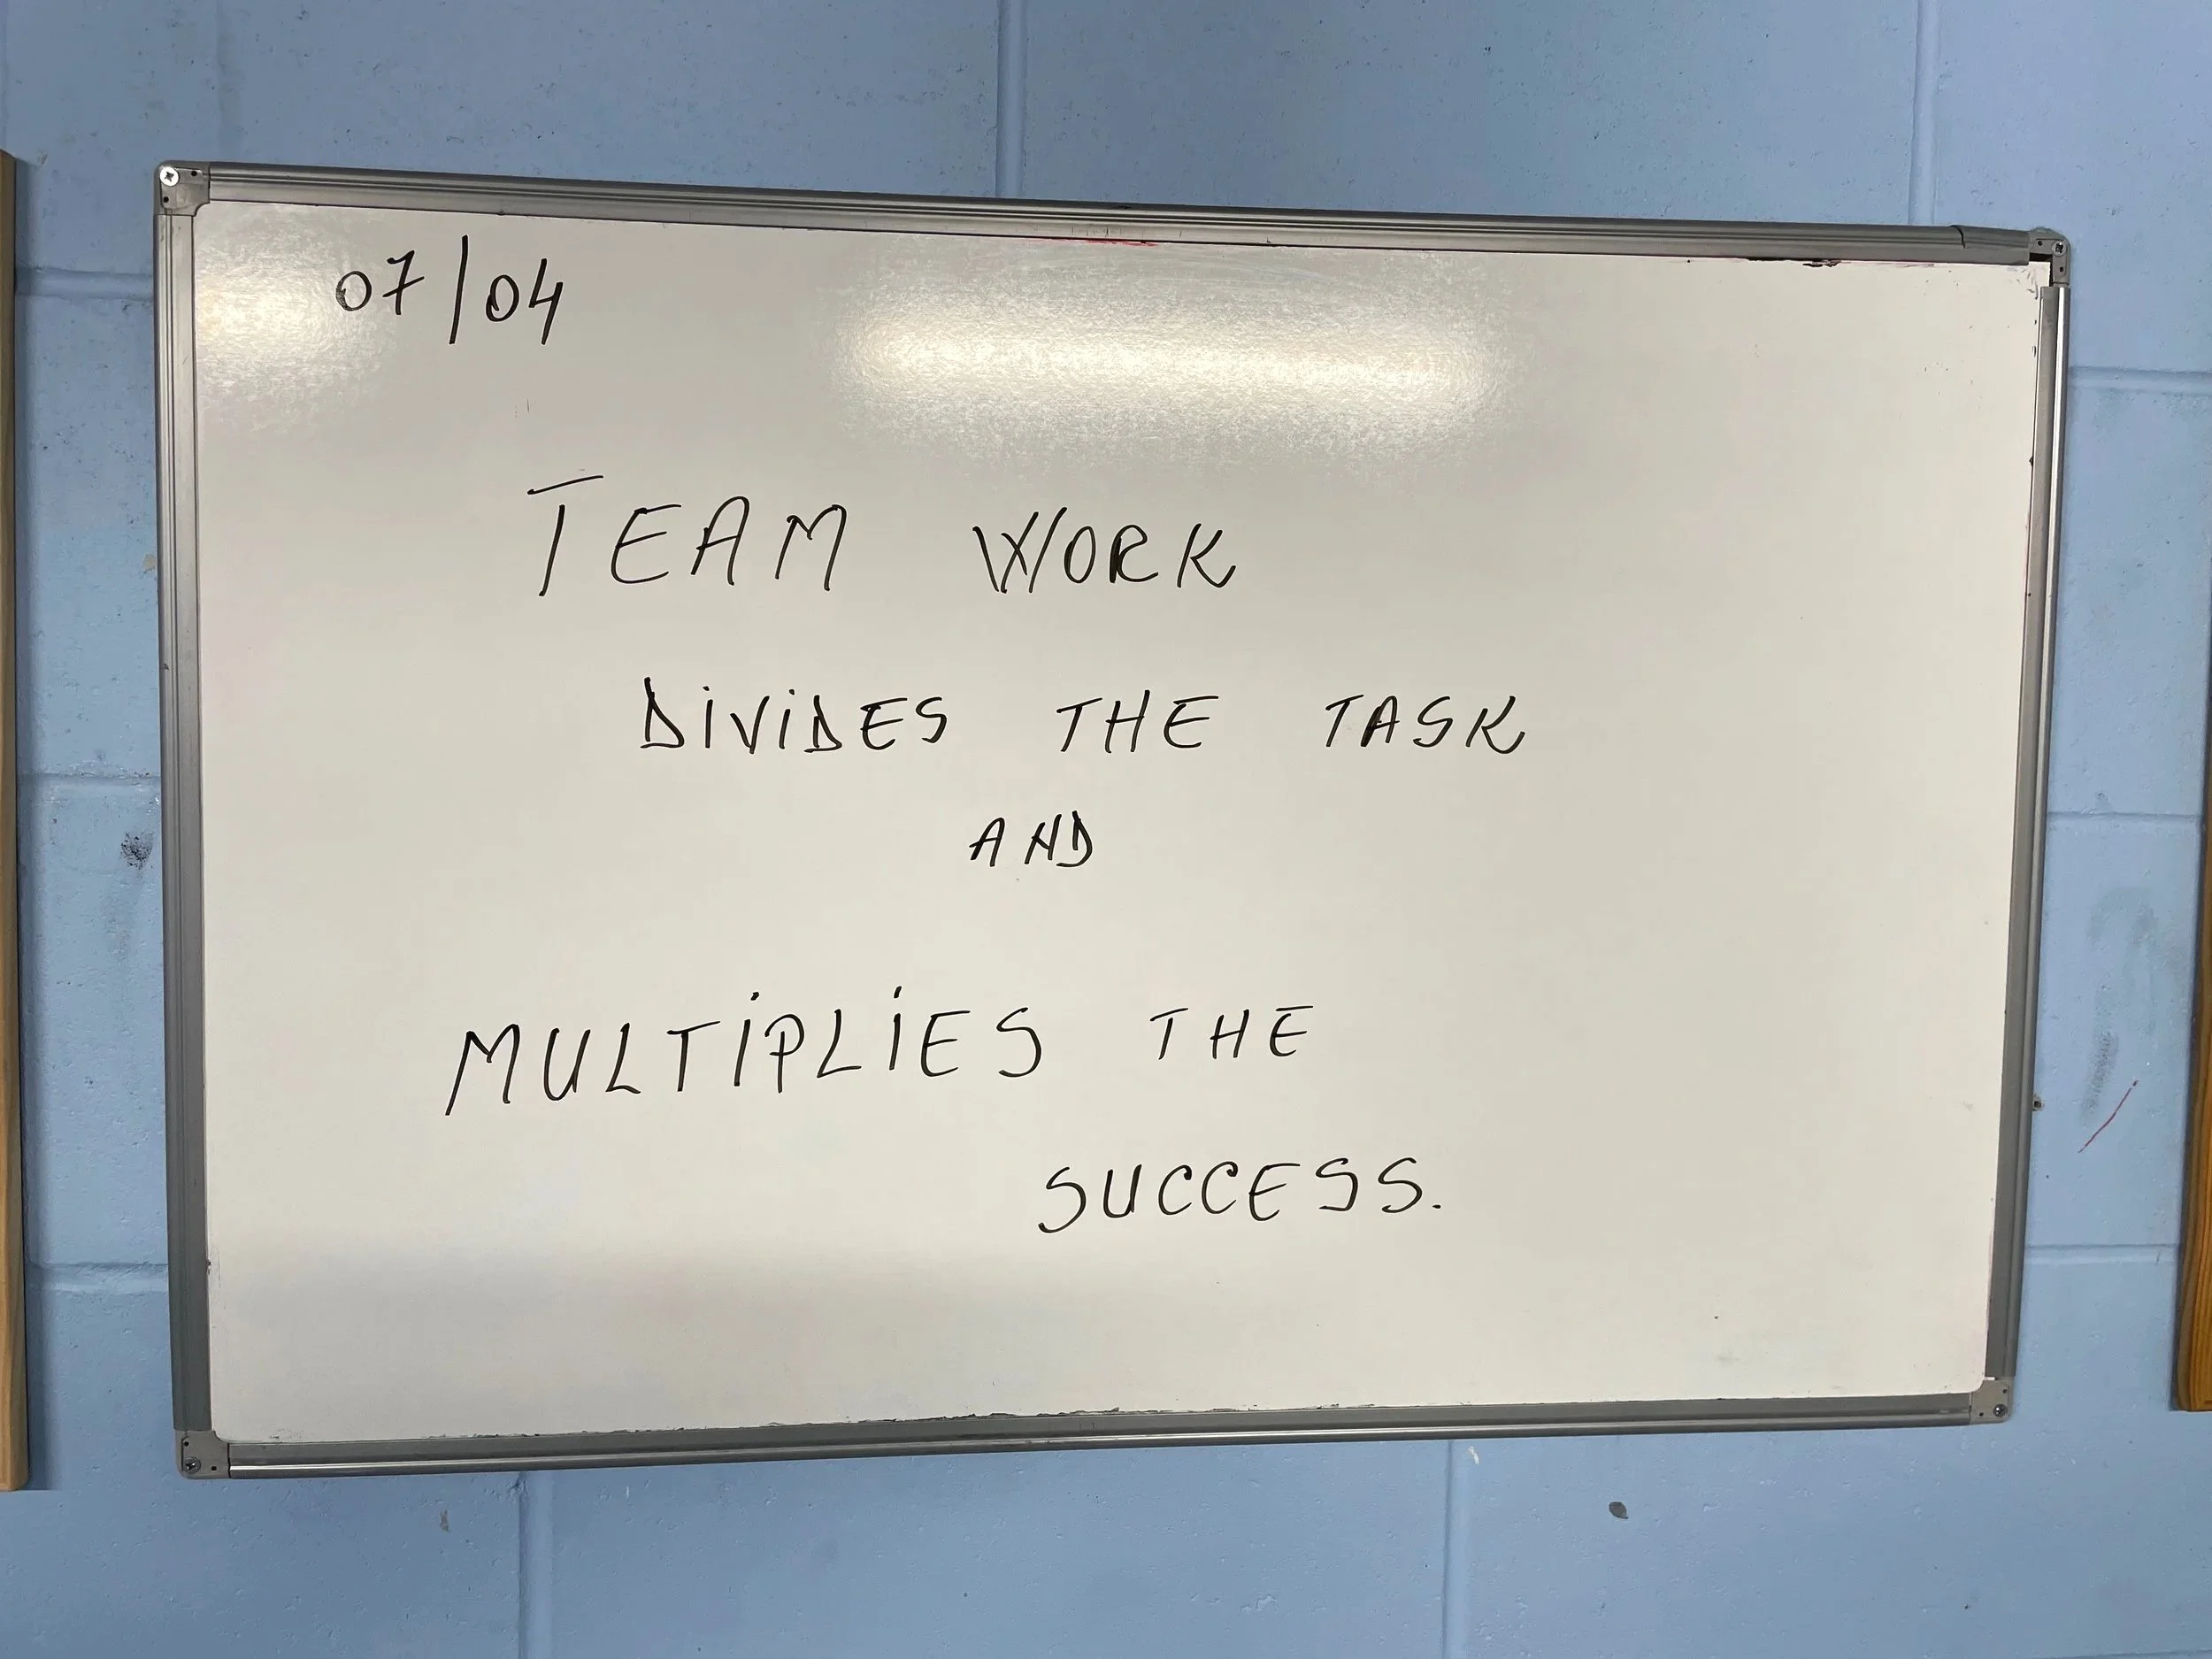 07/04
TEAM WORK
DiViDES THE TASK
AND
MULTiPLiES THE
SUCCESS.